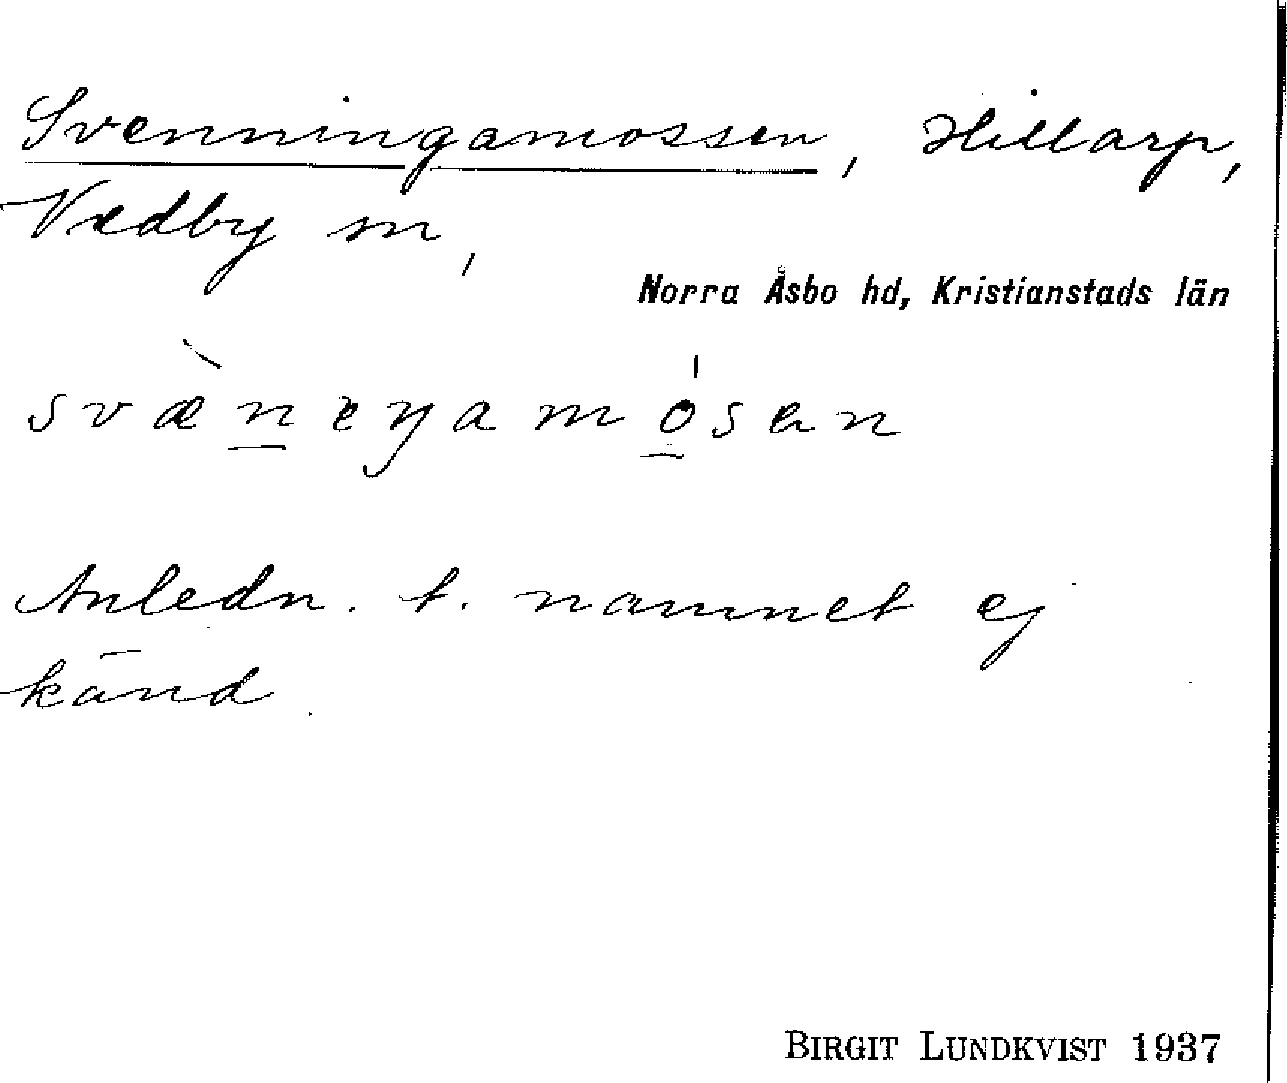 Svenningamossen, Hillarp,
Vedby sn,
Norra Åsbo hd, Kristianstads län
svæ̀neŋamósen
Anledn. t. namnet ej
känd.
BIRGIT LUNDKVIST 1937